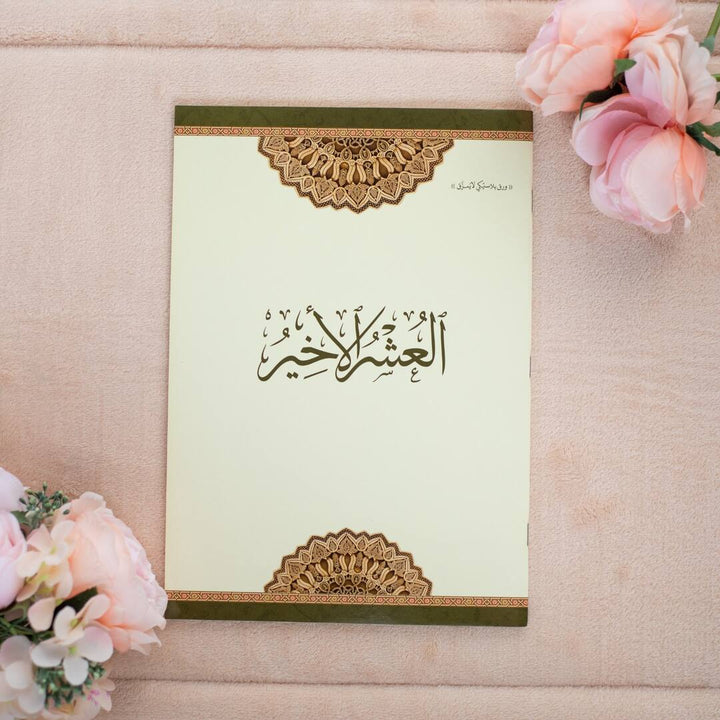 « ورق بلاستيكي لايمزق »
العُشْرُ الأَخِيرُ